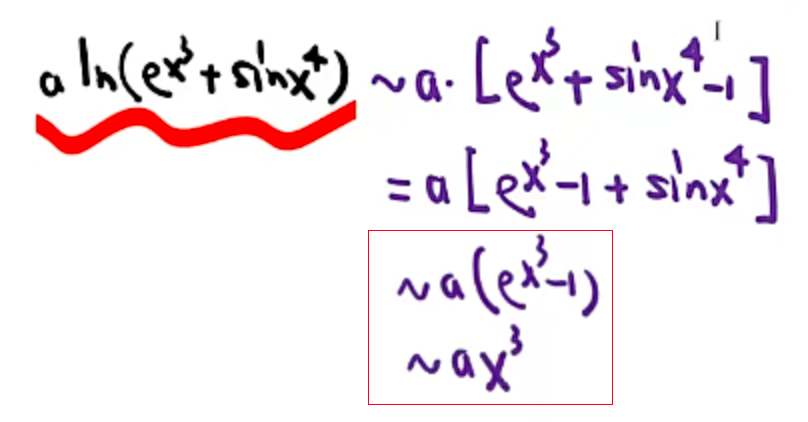 a ln(eˣ³ + sinx⁴) ~ a · [eˣ³ + sinx⁴ - 1]
= a [eˣ³ - 1 + sinx⁴]
~ a (eˣ³ - 1)
~ ax³